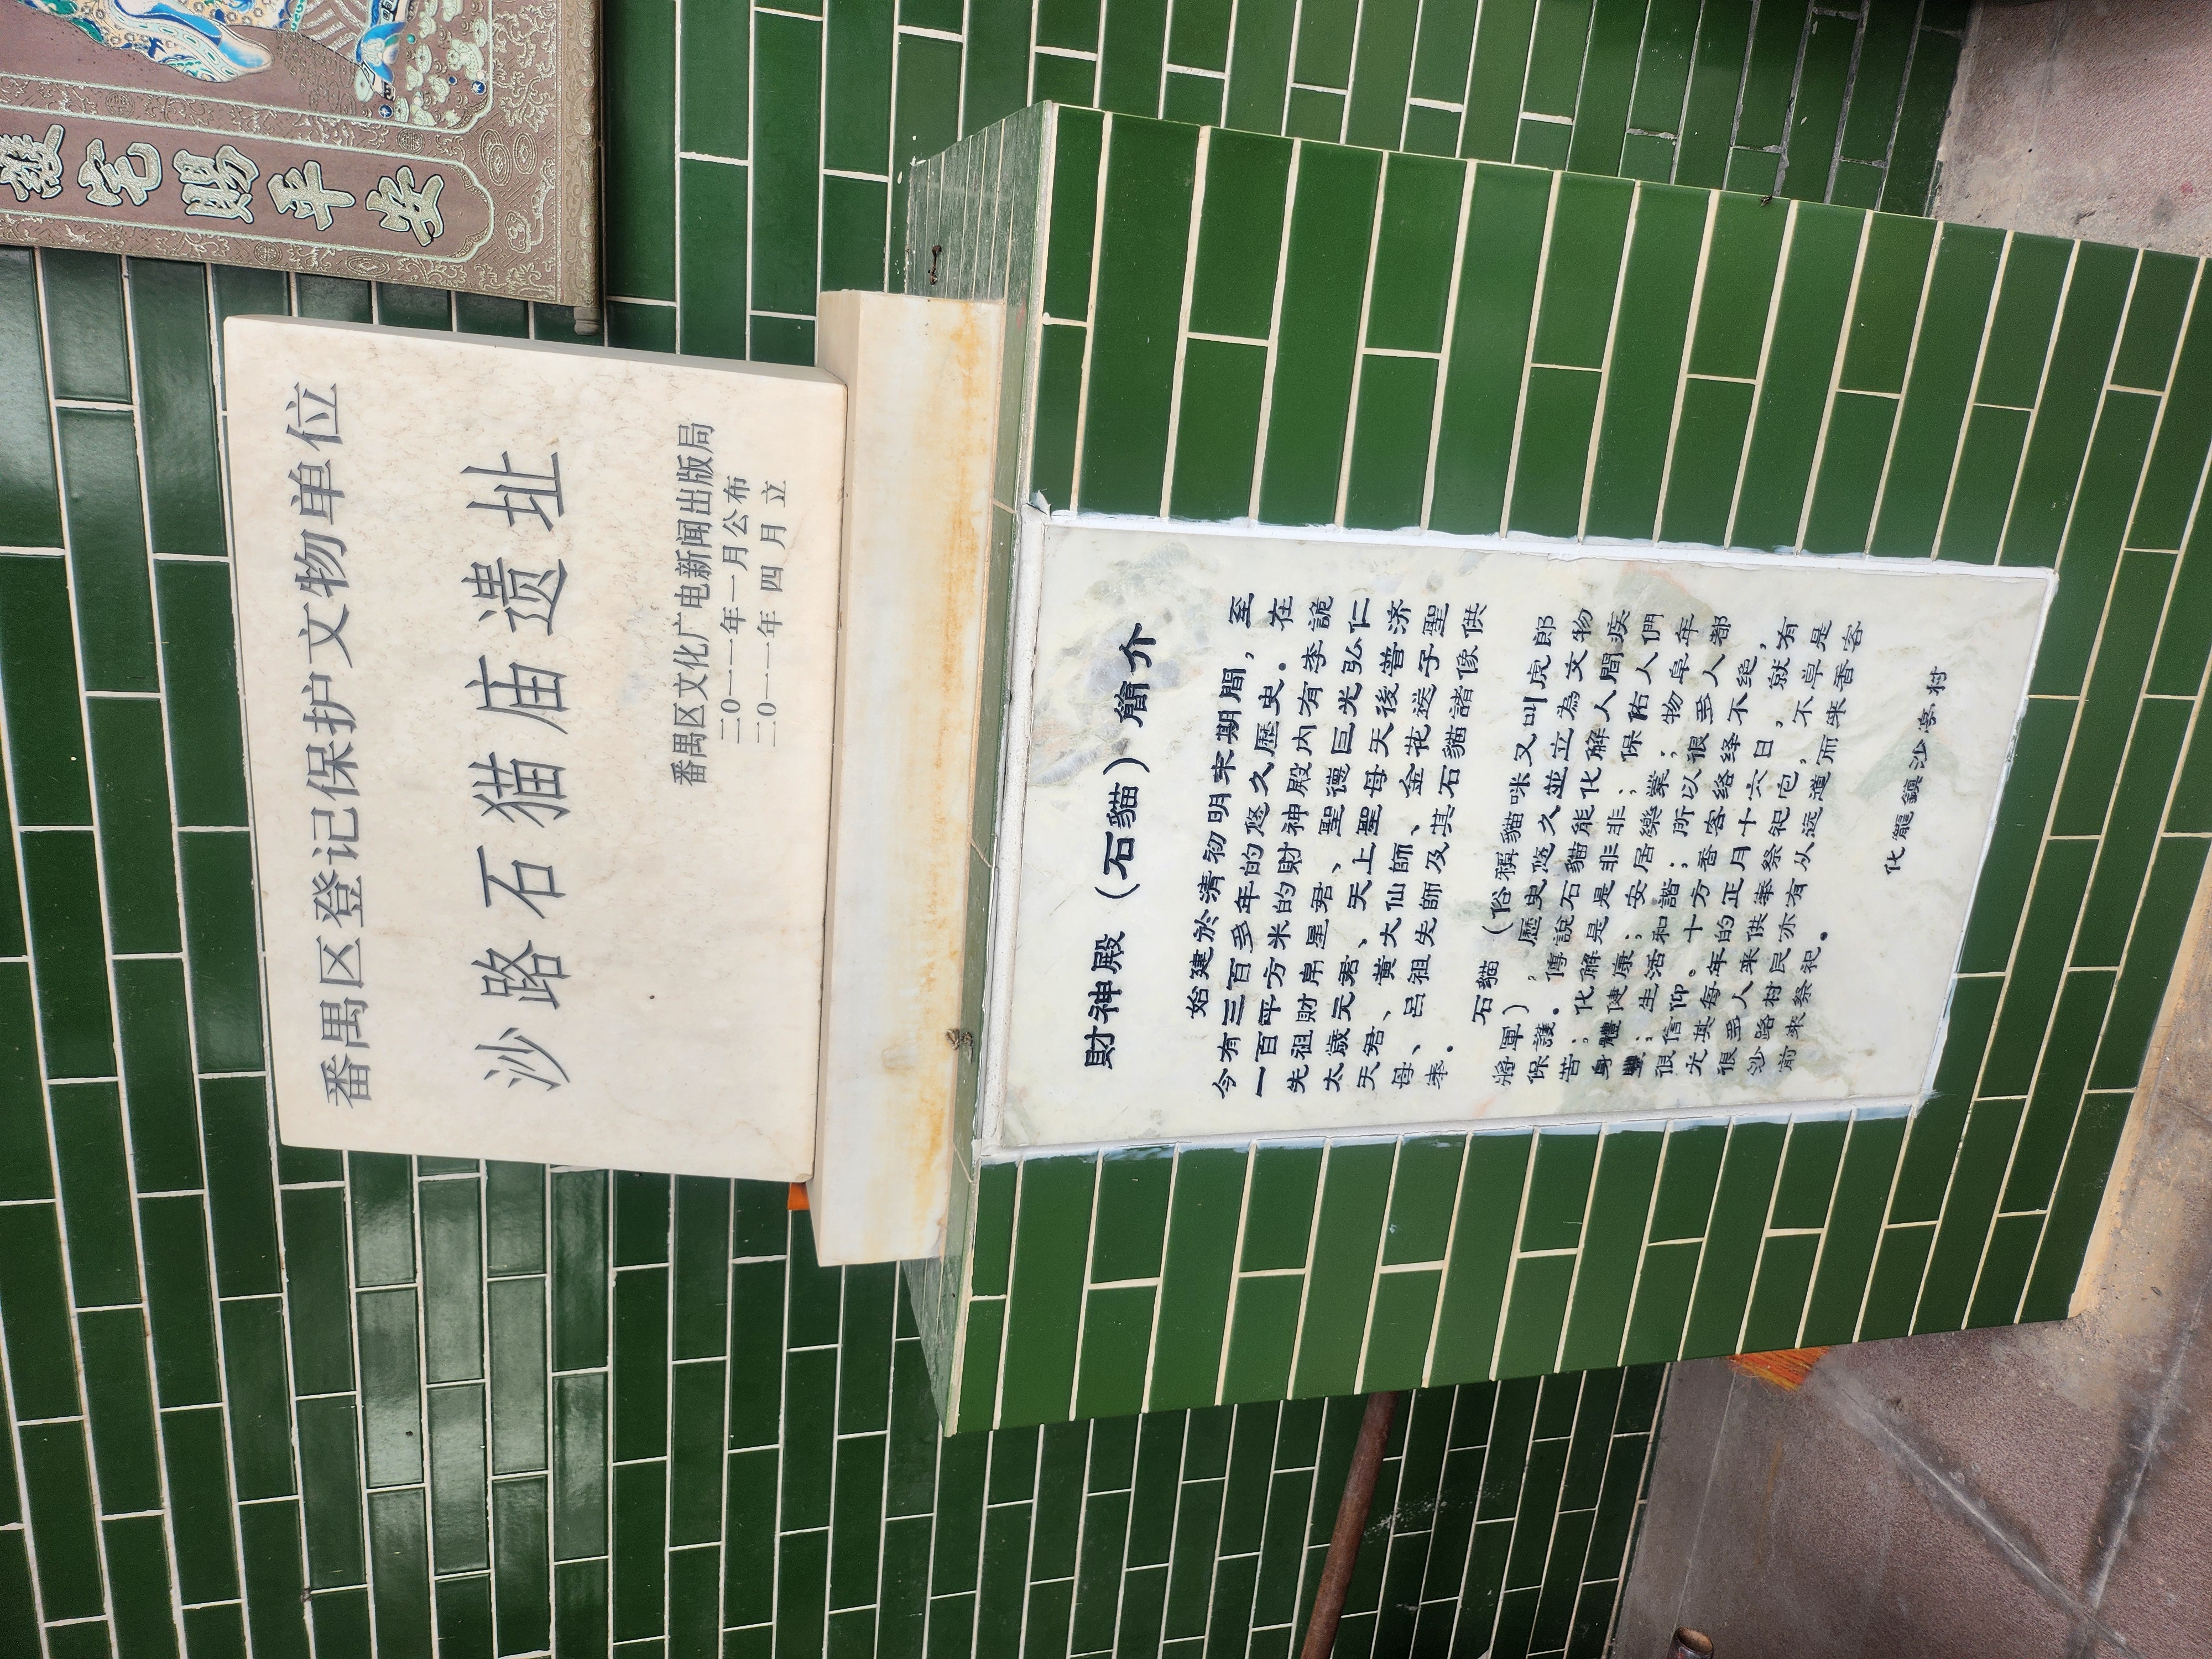 護宅賜平安
番禺区登记保护文物单位
沙路石猫庙遗址
番禺区文化广电新闻出版局
二0一一年一月公布
二0一一年 四 月 立
財神殿（石貓）簡介
始建於清初明末期間，至
今有三百多年的悠久歷史。在
一百平方米的財神殿內有李詭
先祖財帛星君、聖德巨光弘仁
太歲元君、天上聖母天後普济
天君、黃大仙師、金花送子聖
母、呂祖先師及其石貓諸像供
奉。
石貓（俗稱貓咪又叫虎郎
將軍），歷史悠久並立為文物
保護。傳說石貓能化解人間疾
苦；化解是是非非；保祐人們
身體健康；安居樂業；物阜年
豐；生活和諧；所以很多人都
很信仰。十方香客络绎不绝，
尤其每年的正月十六日，就有
很多人来供奉祭祀它，不单是
沙路村民亦有从远道而来香客
前来祭祀。
化龍鎮沙亭村